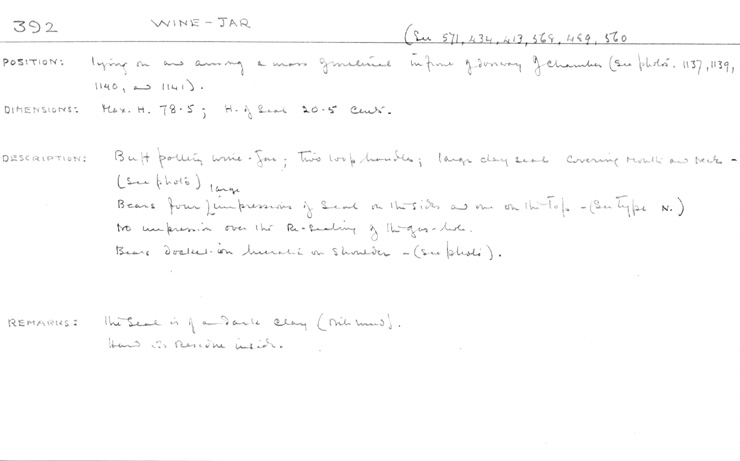 392 WINE-JAR
(See 571, 434, 413, 568, 489, 560
POSITION: Lying on and among a mass of material in front of doorway of chamber (See photos. 1137, 1139,
1140, and 1141).
DIMENSIONS: Max. H. 78.5; H. of Seal 20.5 cents.
DESCRIPTION: Buff pottery wine-jar; two loop handles; large clay seal covering mouth and neck -
(See photo)
Bears four large impressions of seal on the sides and one on the top - (See Type N.)
No impression over the Re-sealing of the gas-hole.
Bears docket in hieratic on shoulder - (See photo).
REMARKS: The seal is of a dark clay (Nile mud).
Residue inside.